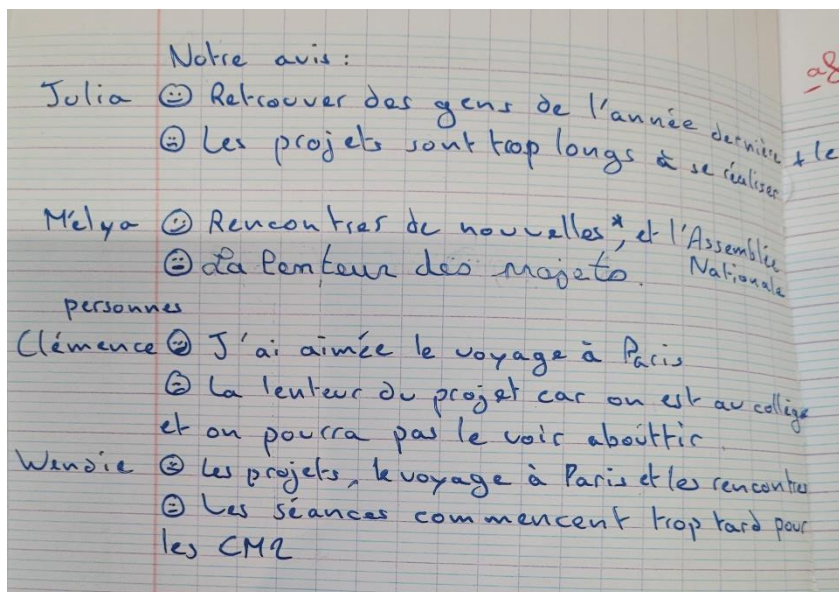 Notre avis :
Julia ☺ Retrouver des gens de l'année dernière + le
☹ Les projets sont trop longs à se réaliser
Mélya ☺ Rencontres de nouvelles*, et l'Assemblée Nationale
☹ La lenteur des projets.
personnes
Clémence ☺ J'ai aimée le voyage à Paris
☹ La lenteur du projet car on est au collège
et on pourra pas le voir abouttir.
Wendie ☺ Les projets, le voyage à Paris et les rencontres
☹ Les séances commencent trop tard pour
les CM2